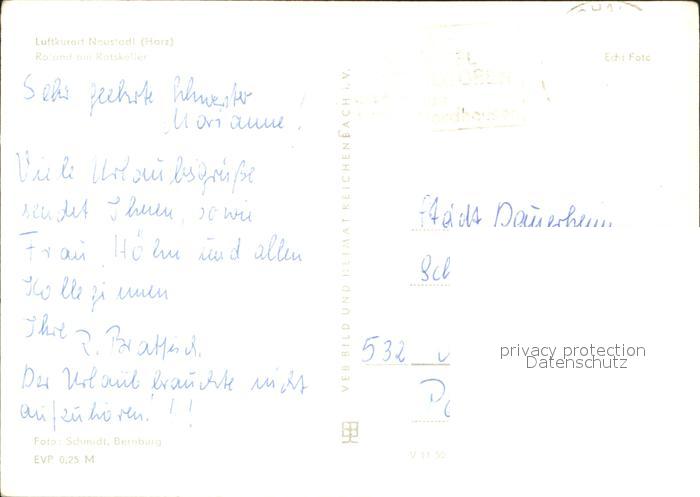 Luftkurort Neustadt (Harz)
Roland am Ratskeller
Echt Foto
Sehr geehrte Schwester
Marianne!
Viele Urlaubsgrüße
sendet Ihnen, sowie
Frau Höhn und allen
Kolleginnen
Ihre
Der Urlaub brauchte nicht
aufzuhören!!!
Foto: Schmidt, Bernburg
EVP 0,25 M
VEB BILD UND HEIMAT REICHENBACH i. V.
Nordhausen
Städt Dauerheim
Sch
532
V 11 50
privacy protection
Datenschutz